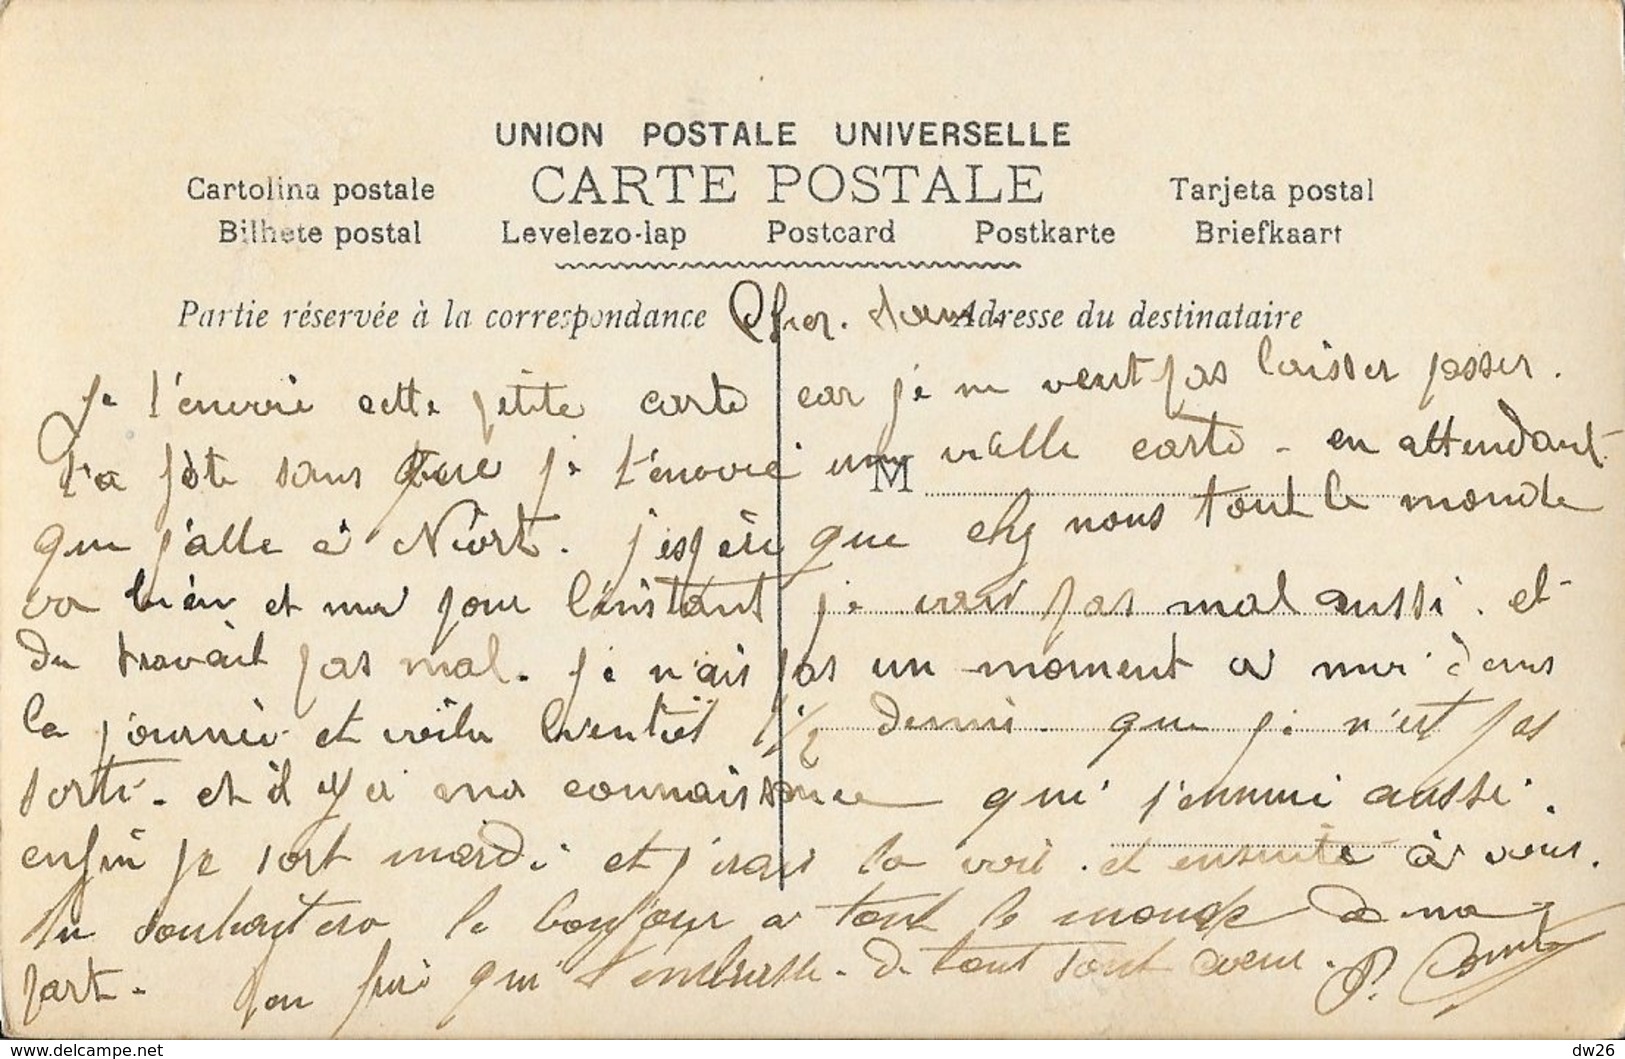 UNION POSTALE UNIVERSELLE
CARTE POSTALE
Cartolina postale Tarjeta postal
Bilhete postal Levelezo-lap Postcard Postkarte Briefkaart
Partie réservée à la correspondance Adresse du destinataire
Je t'envoie cette petite carte car je ne veut pas laisser passer.
ta fête sans que je t'envoie une vielle carte - en attendant
M
que j'alle à Niort. j'espère que chez nous tout le monde
va bien et moi pour l'instant je vais pas mal aussi. et
du travail pas mal. je n'ais pas un moment a moi dans
la journée et voila bientôt 1 1/2 demie que je n'est pas
sorti. et il y a ma connaissance qui s'ennui aussi.
enfin je sort mardi et j'irais la voir. et ensuite à vous.
tu souhaitera le bonjour a tout le monde de ma
part. ton qui t'embrasse. de tout tout coeur. P.
dw26
www.delcampe.net